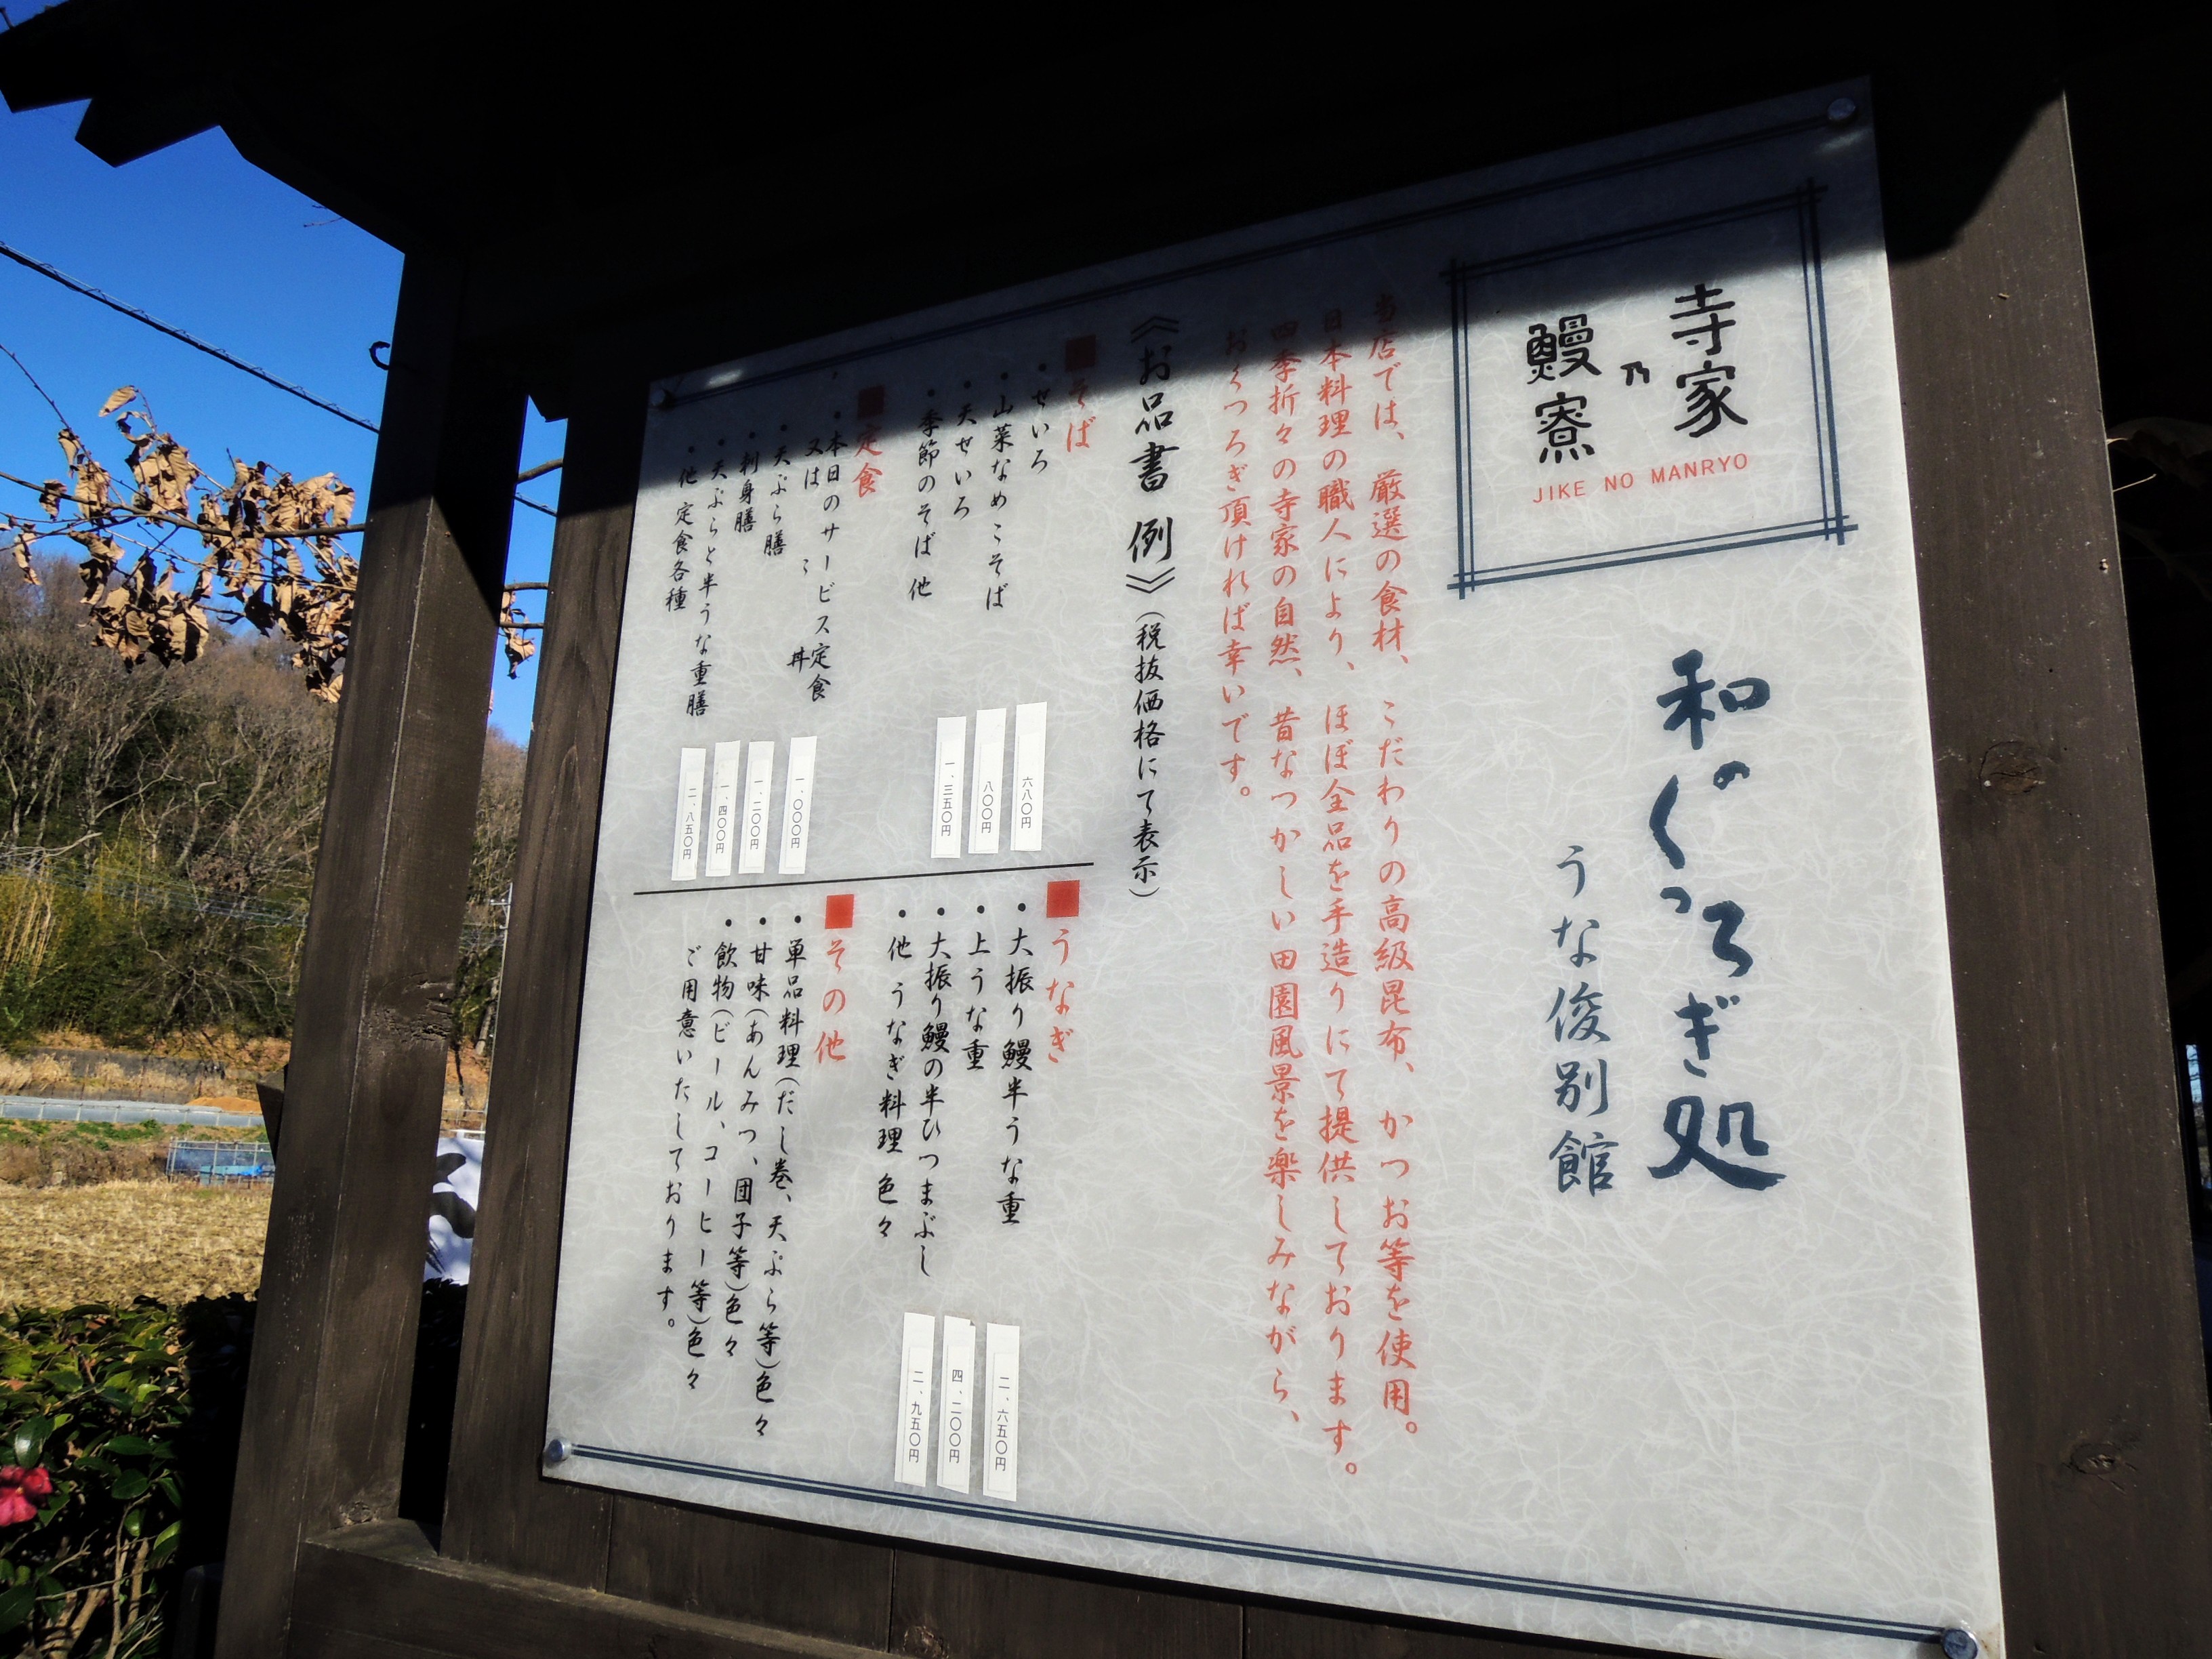 寺家
乃
鰻寮
JIKE NO MANRYO
和のくつろぎ処
うな俊別館
当店では、厳選の食材、こだわりの高級昆布、かつお等を使用。
日本料理の職人により、ほぼ全品を手造りにて提供しております。
四季折々の寺家の自然、昔なつかしい田園風景を楽しみながら、
おくつろぎ頂ければ幸いです。
《お品書 例》（税抜価格にて表示）
■そば
・せいろ 六八〇円
・山菜なめこそば 八〇〇円
・天せいろ 一、三五〇円
・季節のそば 他
■定食
・本日のサービス定食
又は 〃 丼 一、〇〇〇円
・天ぷら膳 一、二〇〇円
・刺身膳 一、四〇〇円
・天ぷらと半うな重膳 二、八五〇円
・他 定食各種
■うなぎ
・大振り鰻半うな重 二、六五〇円
・上うな重 四、二〇〇円
・大振り鰻の半ひつまぶし 二、九五〇円
・他 うなぎ料理 色々
■その他
・単品料理(だし巻、天ぷら等)色々
・甘味(あんみつ、団子等)色々
・飲物(ビール、コーヒー等)色々
ご用意いたしております。